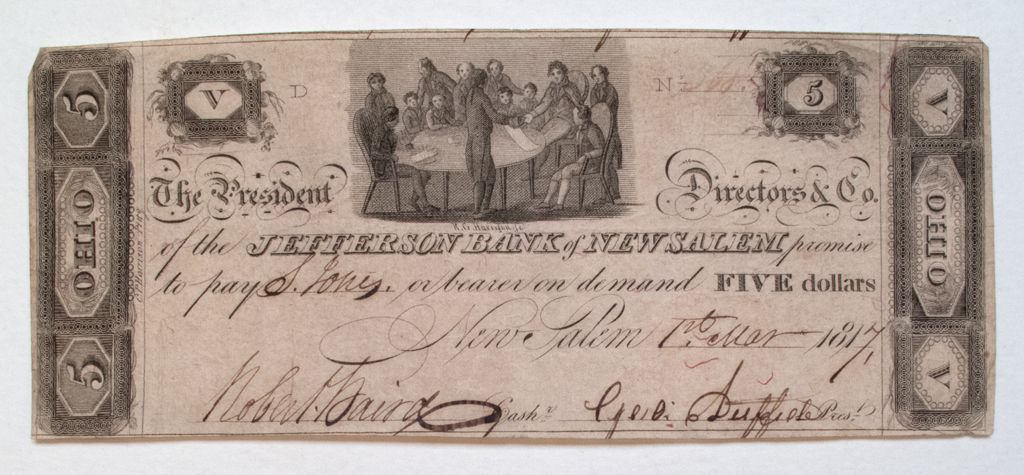 5 V D No 5 V
The President Directors & Co.
of the JEFFERSON BANK of NEW SALEM promise
to pay S. Jones. or bearer on demand FIVE dollars
New Salem 1st Mar 1817,
Robert Baird Cashr. Geo: Duffield Prest.
OHIO
OHIO
5
V